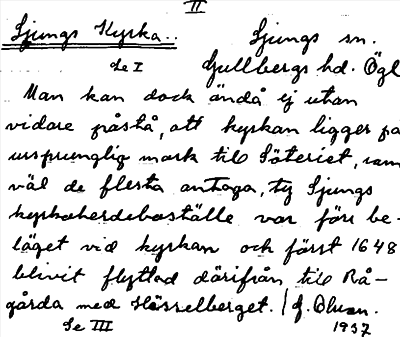 II
Ljungs Kyrka..
Ljungs sn.
Se I
Gullbergs hd. Ögl
Man kan dock ändå ej utan
vidare påstå, att kyrkan ligger på
ursprunglig mark till Säteriet, som
väl de flesta antaga, ty Ljungs
kyrkoherdeboställe var förr be-
läget vid kyrkan och först 1648
blivit flyttad därifrån till Rå-
gårda med Hässelberget. /
Se III
1937